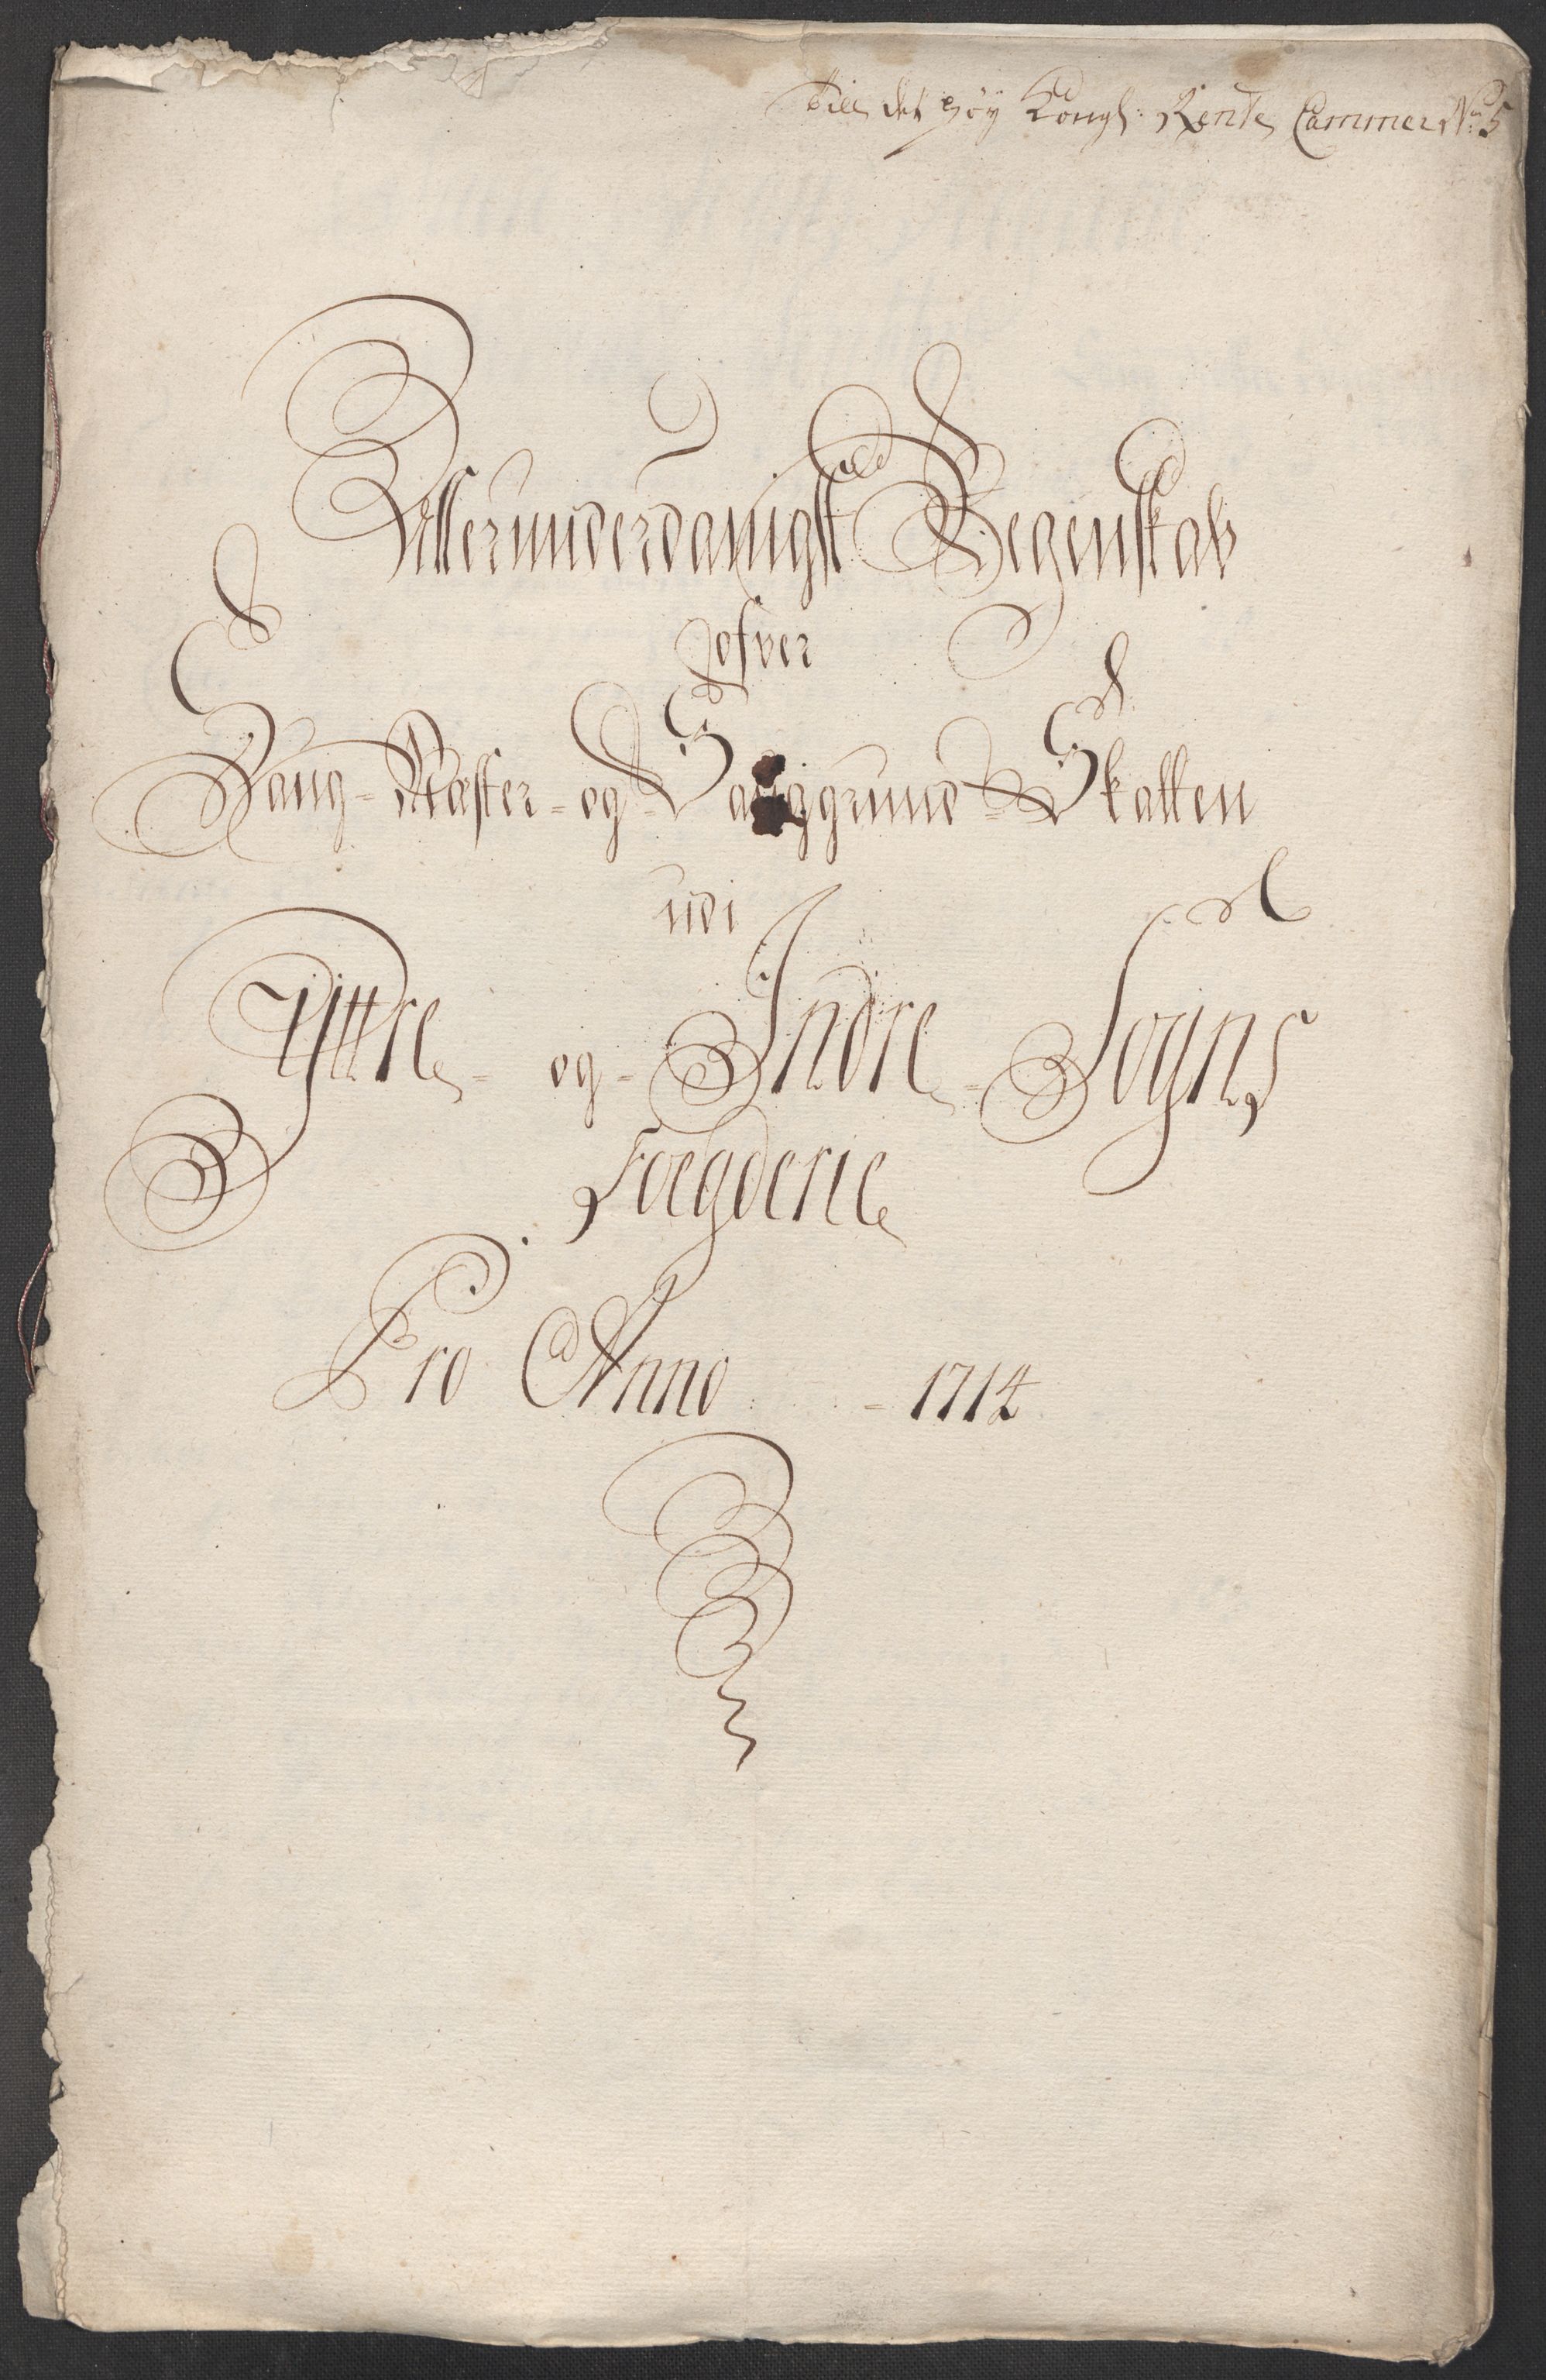 Till det høy Kongl: Rente Cammer No 5
Allerunderdanigst Regenskab
ofver
Saug-Mæster- og Sauggrund-Skatten
udi
Yttre- og- Indre- Sogns
Foegderie
Pro Anno - 1714